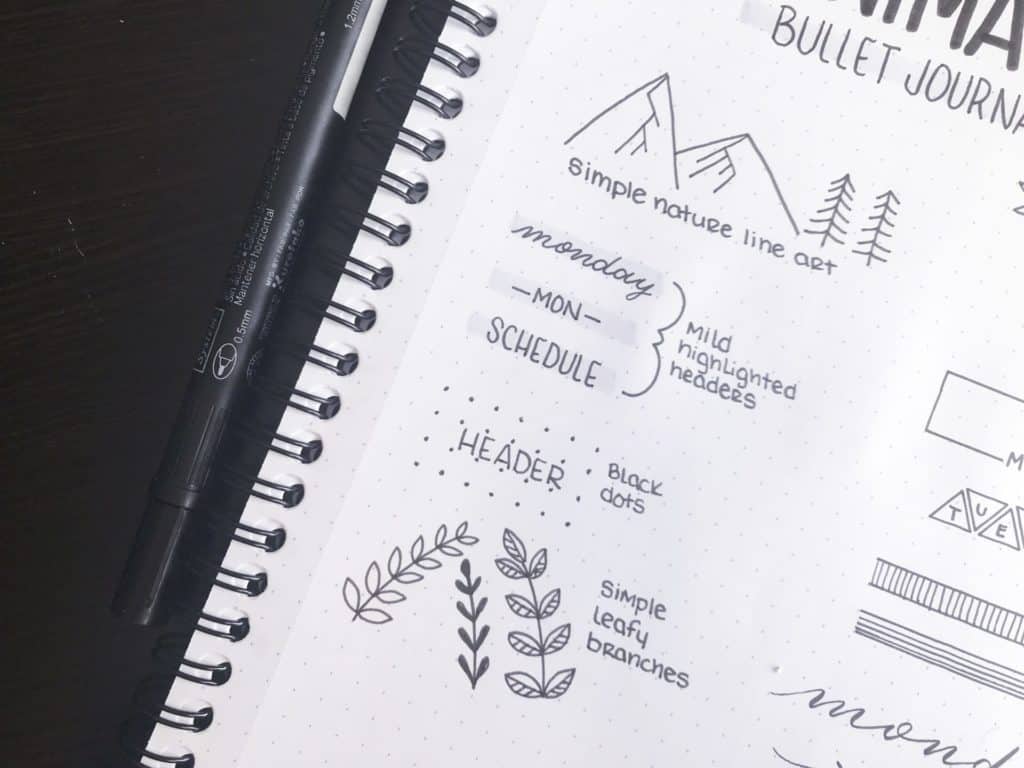 NIMA
BULLET JOURNA
Simple nature line art
monday
—MON—
SCHEDULE
Mild
highlighted
headers
HEADER
Black
dots
Simple
leafy
branches
M
TUE
mond
1.2mm
0.5mm
Mantener horizontal